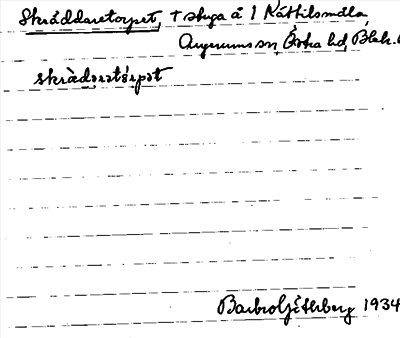 Skräddaretorpet, † stuga å 1 Kättilsmåla,
Augerums sn, Östra hd, Blek.
skràdaratórpət
Barbro Göthberg 1934